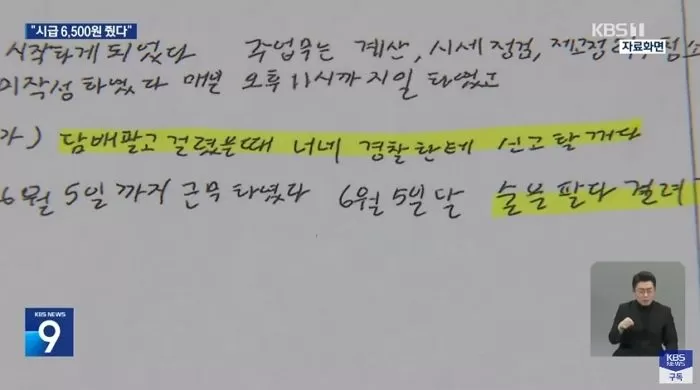 "시급 6,500원 줬다"
KBS 1
자료화면
시작하게 되었다 주업무는 계산, 시세점검,
미작성 하였다 매번 오후 11시까지 일 하였고
가) 담배팔고 걸렸을때 너네 경찰한테 신고 할꺼다
6월 5일 까지 근무 하였다 6월 5일 날 술을 팔다 걸려
KBS NEWS
9
KBS NEWS
구독